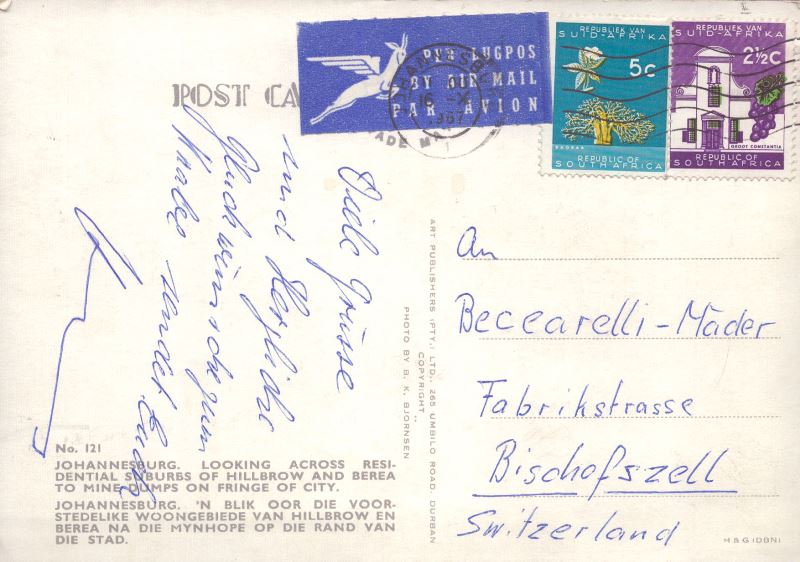 POST CA
PER LUGPOS
BY AIR MAIL
PAR AVION
JOHANNESBURG
16 X
1967
ADE MA
REPUBLIEK VAN
SUID-AFRIKA
5c
BAOBAB
REPUBLIC OF
SOUTH AFRICA
REPUBLIEK VAN
SUID-AFRIKA
2½c
GROOT CONSTANTIA
REPUBLIC OF
SOUTH AFRICA
Viele Grüsse
und Herzliche
Glückwünsche zum
sendet Euch
No. 121
JOHANNESBURG. LOOKING ACROSS RESI-
DENTIAL SUBURBS OF HILLBROW AND BEREA
TO MINE DUMPS ON FRINGE OF CITY.
JOHANNESBURG. 'N BLIK OOR DIE VOOR-
STEDELIKE WOONGEBIEDE VAN HILLBROW EN
BEREA NA DIE MYNHOPE OP DIE RAND VAN
DIE STAD.
ART PUBLISHERS (PTY.) LTD., 265 UMBILO ROAD, DURBAN
COPYRIGHT
PHOTO BY B. K. BJORNSEN
An
Beccarelli-Mäder
Fabrikstrasse
Bischofszell
Switzerland
H & G (DBN)